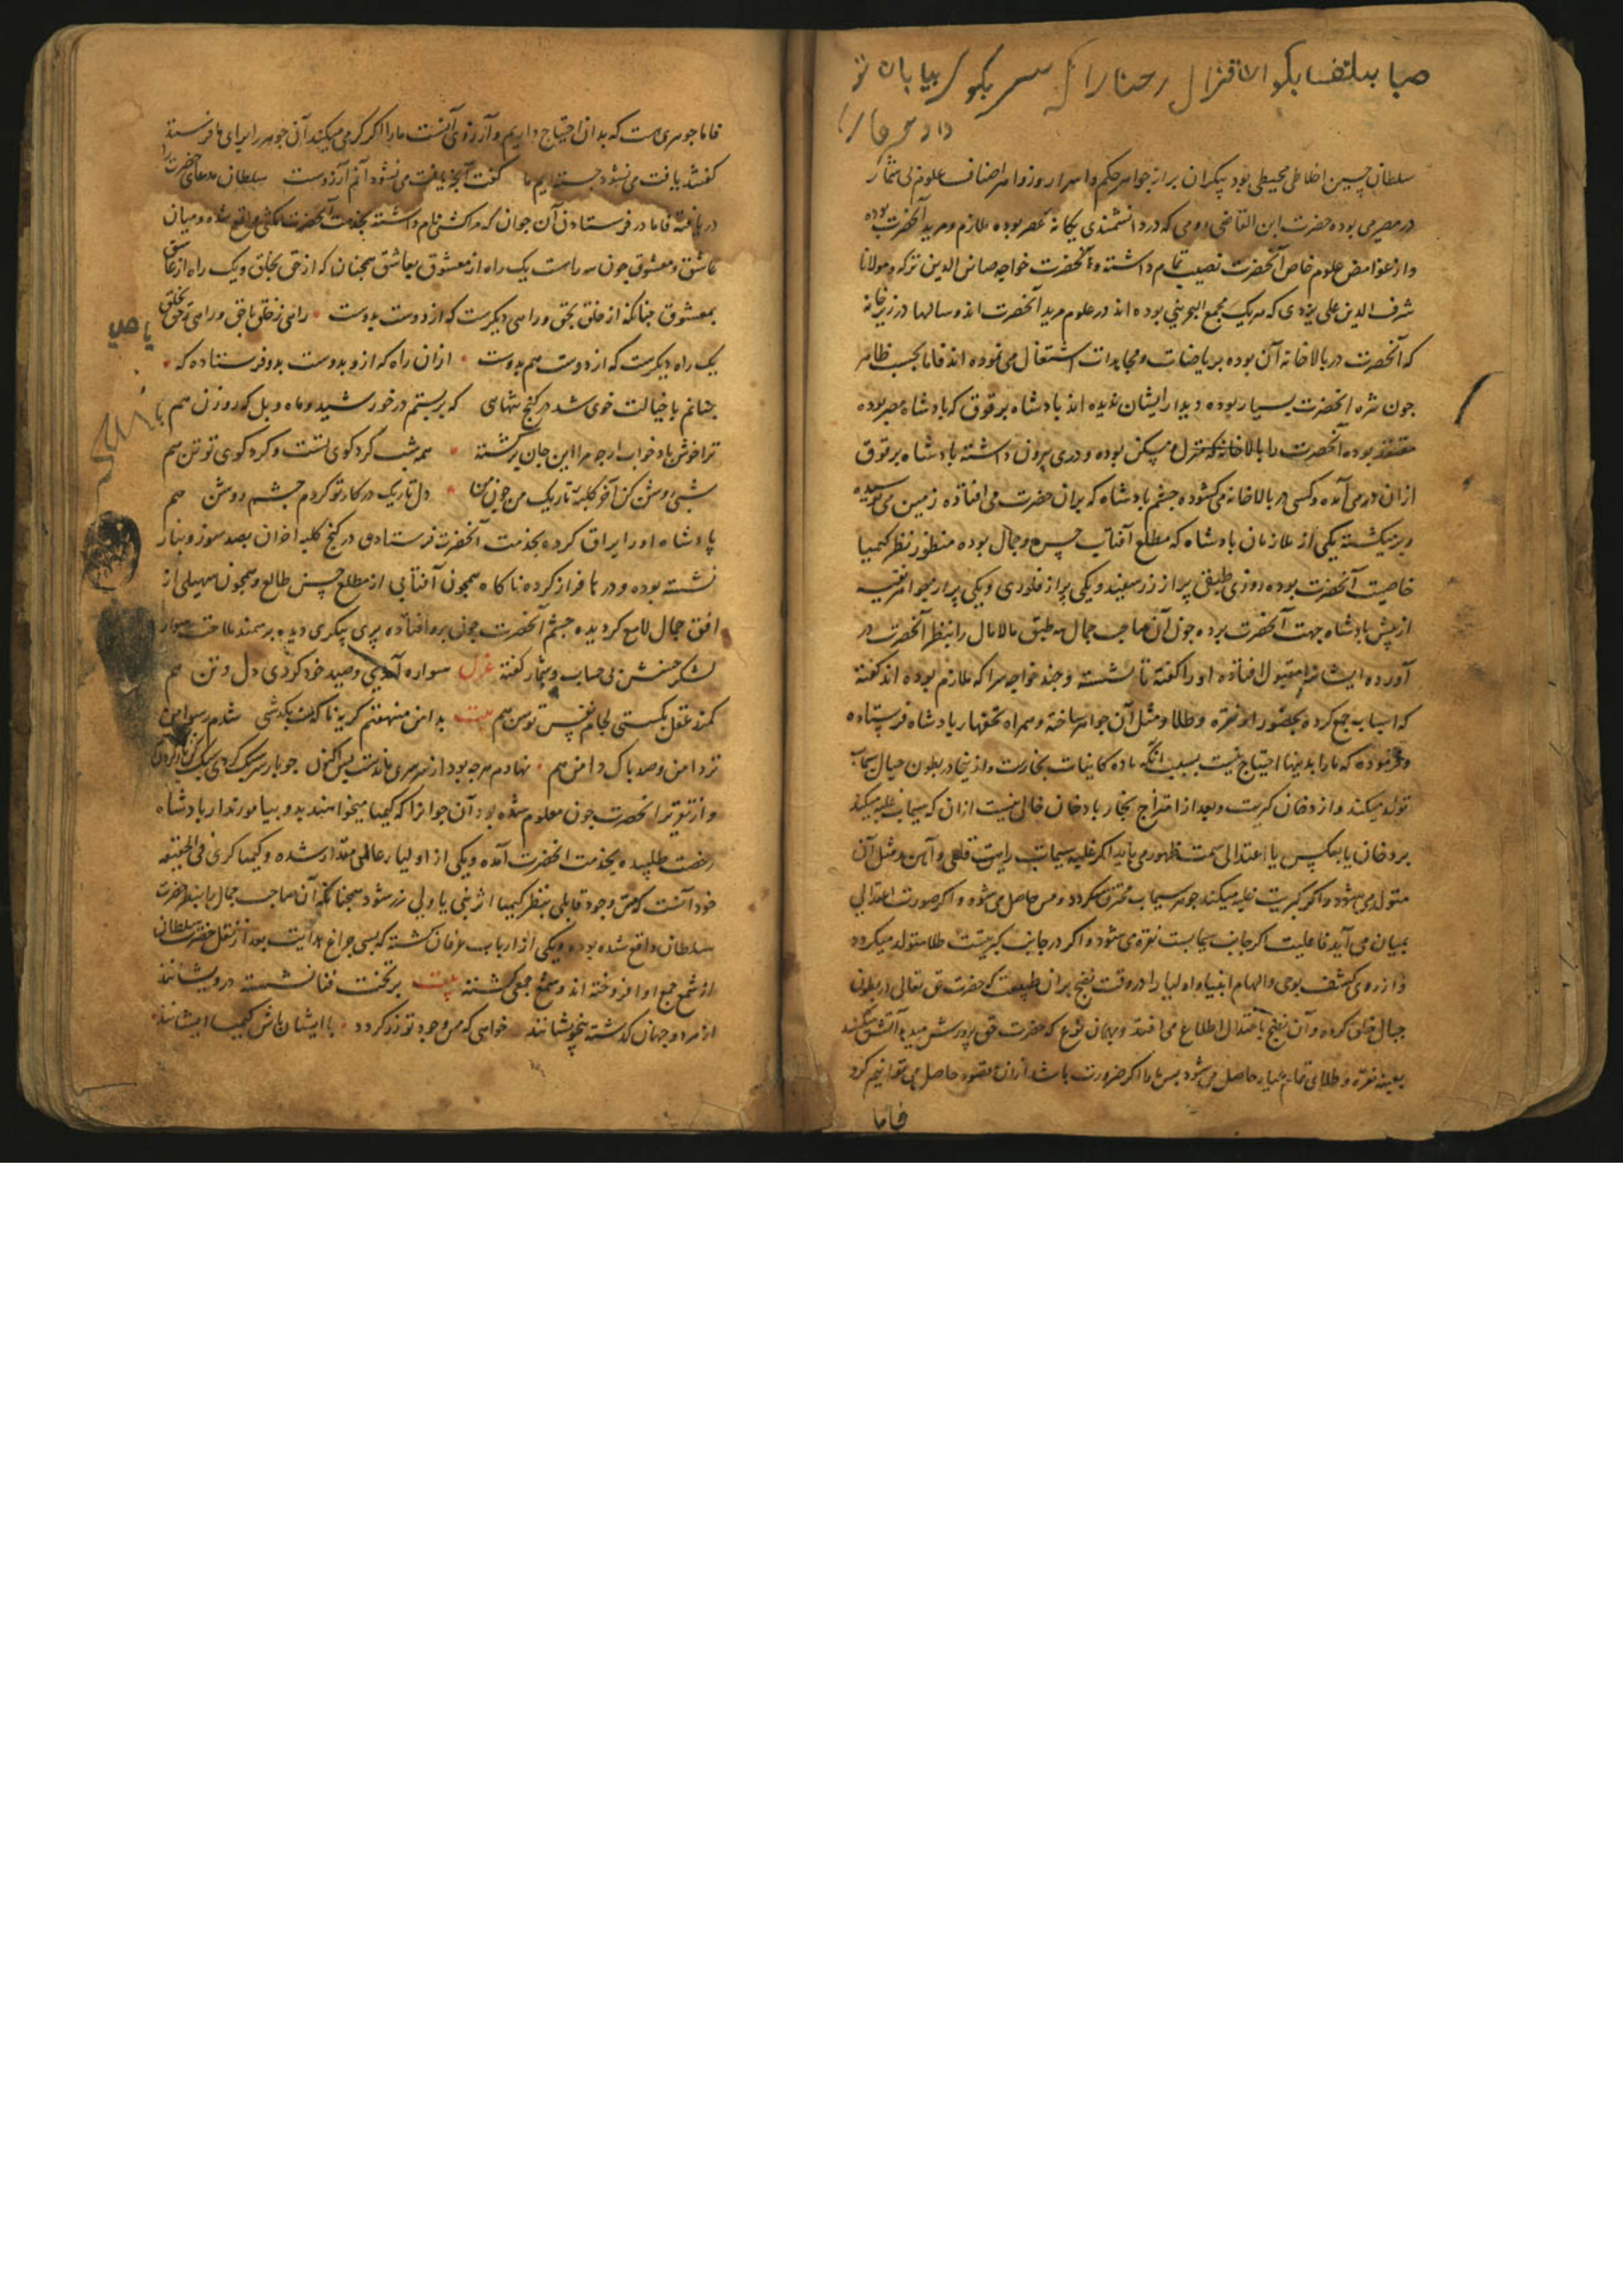 صبا بلطف بگو آن غزال رعنا را که سر بکوه و بیابان تو
داده ما را
سلطان حسین اخلاطی محیطی بود بیکران پر از جواهر حکم و اسرار و زواهر اصناف علوم بی شمار
در مصر می بوده حضرت ابن القاضی رومی که در دانشمندی یگانه عصر بوده ملازم و مرید آنحضرت بوده
و از غوامض علوم خاص آنحضرت نصیب تمام داشته و حضرت خواجه صاین الدین ترکه و مولانا
شرف الدین علی یزدی که هر یک مجمع البحرینی بوده اند در علوم مرید آنحضرت اند و سالها در زیر خانه
که آنحضرت در بالاخانه آن بوده بریاضات و مجاهدات اشتغال می نموده اند فاما بحسب ظاهر
چون شره آنحضرت بسیار بوده دیدار ایشان ندیده اند پادشاه برقوق که پادشاه مصر بوده
معتقد بوده آنحضرت را بالاخانه که منزل و مسکن بوده و دری بیرون داشته پادشاه برقوق
ازان در می آمده و کسی در بالاخانه می گشوده چشم پادشاه که بران حضرت می افتاده زمین می بوسیده
و بر میگشته یکی از ملازمان پادشاه که مطلع آفتاب حسن و جمال بوده منظور نظر کیمیا
خاصیت آنحضرت بوده روزی طبقی پر از زر سفید و یکی پر از فلوری و یکی پر از جواهر نفیسه
از پیش پادشاه جهت آنحضرت برده چون آن صاحب جمال سه طبق مالامال را بنظر آنحضرت در
آورده ایشانرا مقبول افتاده او را گفته تا نشسته و چند خواجه سرا که ملازم بوده اند گفته
که اسباب جمع کرده بحضور او نقره و طلا و مثل آن جواهر ساخته و همراه تحفهای پادشاه فرستاده
و فرموده که ما را بدینها احتیاج نیست بسبب آنکه ماده کاینات بخارست و از بخار در بطون جبال سیماب
تولد میکند و از دخان کبریت و بعد از امتزاج بخار با دخان خالی نیست ازان که سیماب غلبه میکند
بر دخان یا بعکس یا اعتدالی سمت ظهور می یابد اگر غلبه سیماب راست قلعی و آهن و مثل آن
متولد می شود و اگر کبریت غلبه میکند جوهر سیماب محترق میگردد و مس حاصل می شود و اگر صورت اعتدالی
بمیان می آید فاعلیت اگر جانب سیمابست نقره می شود و اگر در جانب کبریتست طلا متولد میگردد
و از روی کشف بوحی و الهام انبیا و اولیا را در وقت نضج بران طبیعت که حضرت حق تعالی در بطون
جبال خلق کرده و آن نضج باعتدال اطلاع می افتد و بهمان نوع که حضرت حق پرورش میدهد آتش میکنند
بعینه نقره و طلای تمام عیار حاصل می شود پس ما را اگر ضرورت باشد ازان مقصود حاصل می توانیم کرد
فاما
فاما جوهری هست که بدان احتیاج داریم و آرزوی آنست ما را اگر کرم میکند آن جوهر را برای ما فرستد
گفتند یافت می نشود جسته ایم ما گفت آنچه یافت می نشود آنم آرزوست سلطان مدعای حضرت را
دریافته فاما در فرستادن آن جوان که سرکشی تمام داشته بخدمت آنحضرت مکثی واقع شده و میان
عاشق و معشوق چون سه راست یک راه از معشوق بعاشق همچنان که از حق بخلق و یک راه از عاشق
بمعشوق چنانکه از خلق بحق و راهی دیگرست که از دوست بدوست راهی ز خلق تا حق و راهی ز حق بخلق
یک راه دیگرست که از دوست هم بدوست ازان راه که از و بدوست بدو فرستاده که
چنانم با خیالت خوی شد در کنج تنهایی که بربستم در خورشید و ماه و بل که روزن هم
ترا خوش باد خواب ارچه مرا این جان برگشته همه شب گرد کوی تست و گرد کوی تو تن هم
شبی روشن کن آخر کلبه تاریک من چون من دل تاریک در کار تو کردم چشم روشن هم
پادشاه او را یراق کرده بخدمت آنحضرت فرستاد و در کنج کلبه احزان بصد سوز و نیاز
نشسته بوده و درها فراز کرده ناگاه همچون آفتابی از مطلع حسن طالع و همچون سهیلی از
افق جمال لامع گردیده چشم آنحضرت چون برو افتاده پری پیکری دیده بر سمند ملاحت سوار
لشکر حسنش بی حساب و شمار گفته غزل سواره آمدی و صید خود کردی دل و تن هم
کمند عقل بگسستی لجام نفس توسن هم بیت بدامن می نهفتم گریه ناگه مست بگذشتی شدم رسوا من
تردامن و صد پاک دامن هم نهادم هرچه بود از سر سری ماندست پس اکنون
و از تقریر آنحضرت چون معلوم شده بود آن جوانرا که کیمیا میخواهند بدو بیاموزند از پادشاه
رخصت طلبیده بخدمت آنحضرت آمده و یکی از اولیاء عالی مقدار شده و کیمیا گری فی الحقیقه
خود آنست که مس وجود قابلی بنظر کیمیا اثر نبی یا ولی زر شود همچنانکه آن صاحب جمال را بنظر حضرت
سلطان واقع شده بوده و یکی از ارباب عرفان گشته که بسی چراغ هدایت بعد از نقل حضرت سلطان
از شمع جمع او افروخته اند و شمع جمعی گشته بیت بر تخت فنا نشسته درویشانند
از هر دو جهان گذشته بیخویشانند خواهی که مس وجود تو زر گردد با ایشان باش کیمیا ایشانند